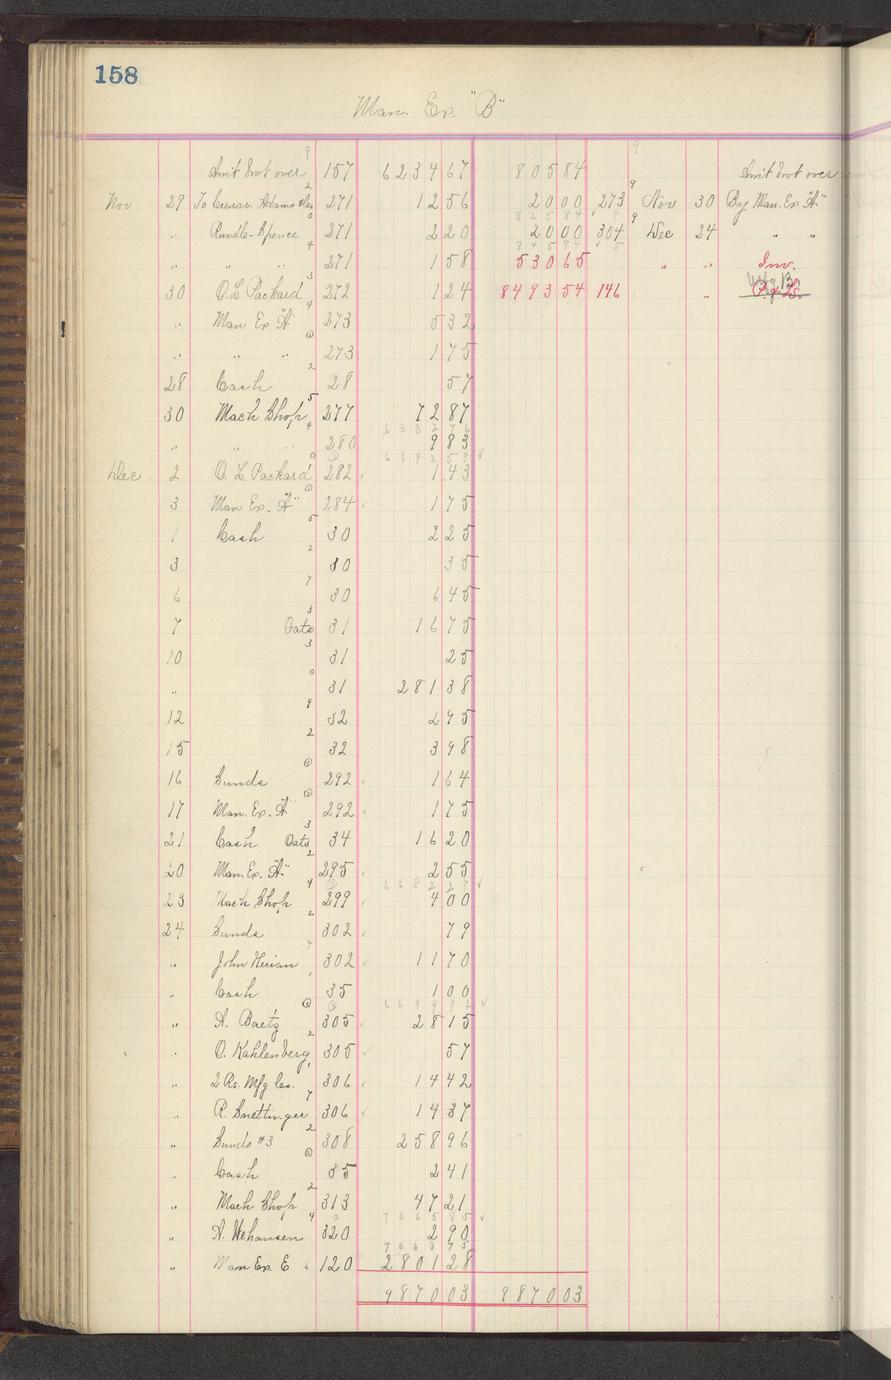 158
Man. Ex. "B"
Amt brot over 157 6234 67 805 84 Amt brot over
Nov 29 To Adams 271 12 56 20 00 273 Nov 30 By Man. Ex "A"
825 84
" Rundle-Spence 271 2 20 20 00 304 Dec 24 " "
845 84
" " " 271 1 58 530 65 " " Inv.
30 O. L. Packard 272 1 24 8493 54 146 "
" Man Ex "A" 273 5 32
" " " 273 1 75
28 Cash 28 57
30 Mach Shop 277 72 87
6332 76
" " " 280 9 83
6342 59
Dec 2 O. L. Packard 282 1 43
3 Man Ex. "A" 284 1 75
1 Cash 30 2 25
3 30 35
6 30 6 45
7 Oats 31 16 75
10 31 25
" 31 281 38
12 32 2 95
15 32 3 98
16 Sunds 292 1 64
17 Man. Ex. "A" 292 1 75
21 Cash Oats 34 16 20
20 Man. Ex. "A" 295 2 55
6682 27
23 Mach Shop 299 4 00
24 Sunds 302 79
" John 302 11 70
" Cash 35 1 00
6699 76
" A. Baetz 305 28 15
" O. Kahlenberg 305 57
" 2 Rs. Mfg Co. 306 14 42
" R. 306 14 37
" Sunds #3 308 258 96
" Cash 35 2 41
" Mach Shop 313 47 21
7065 85
" A. Wehausen 320 2 90
7068 75
" Man Ex. E 120 2801 28
9870 03 9870 03